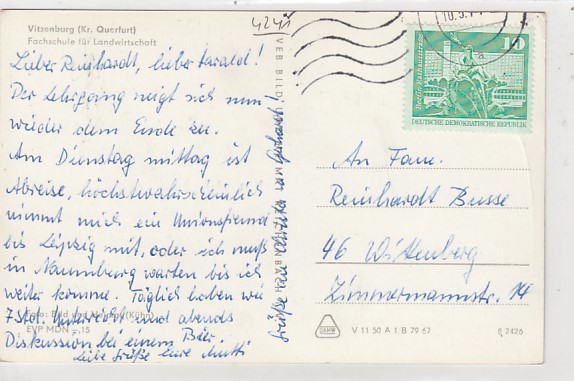 Vitzenburg (Kr. Querfurt)
Fachschule für Landwirtschaft
4241
Lieber Reinhardt, lieber Harald!
Der Lehrgang neigt sich nun
wieder dem Ende zu.
Am Dienstag mittag ist
Abreise, höchstwahrscheinlich
nimmt mich ein Unionsfreund
bis Leipzig mit, oder ich muß
in Naumburg warten bis ich
weiter komme. Täglich haben wir
7 Std. Unterricht und abends
Diskussion bei einem Bier.
liebe Grüße eure Mutti
Foto: Bild und Heimat (Kühn)
EVP MDN -,15
VEB BILD
Grüße an
Gerhardt!
10
DEUTSCHE DEMOKRATISCHE REPUBLIK
An Fam.
Reinhardt Busse
46 Wittenberg
Zimmermannstr. 14
V 11 50 A 1 B 79 67
6 2426